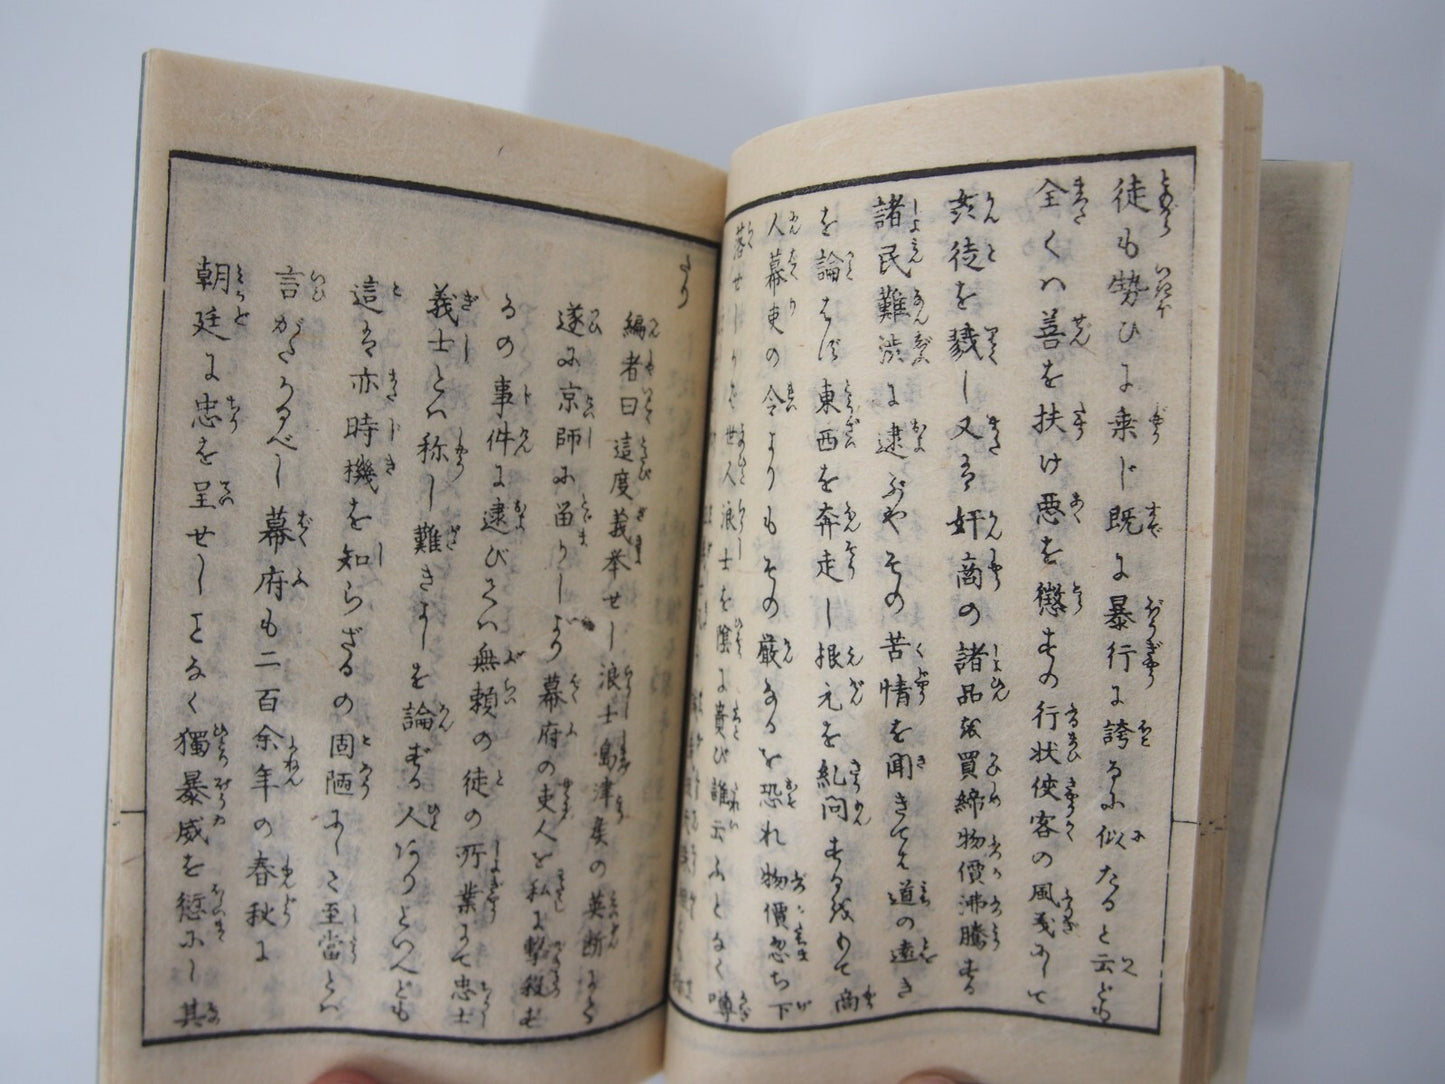 徒も勢ひに乗じ既に暴行に誇るに似たると云ども
全くハ善を扶け悪を懲すの行状侠客の風義にして
徒を戮し又ハ奸商の諸品を買締物價沸騰する
諸民難渋に逮ぶやその苦情を聞きてハ道の遠き
を論ぜず東西を奔走し根元を糺問する故もて商
人幕吏の令よりもその厳なるを恐れ物價忽ち下
落せしかば世人浪士を陰に貴び誰云ふとなく噂
たり
編者曰這度義挙せし浪士島津侯の英断にて
遂に京師に留りしより幕府の吏人を私に撃殺せ
るの事件に逮びてハ無頼の徒の所業にて忠士
義士とハ称し難きよしを論ずる人ありといへども
這ハ亦時機を知らざるの固陋にして至當とハ
言がたかるべし幕府も二百余年の春秋に
朝廷に忠を呈せしことなく獨暴威を恣にし其